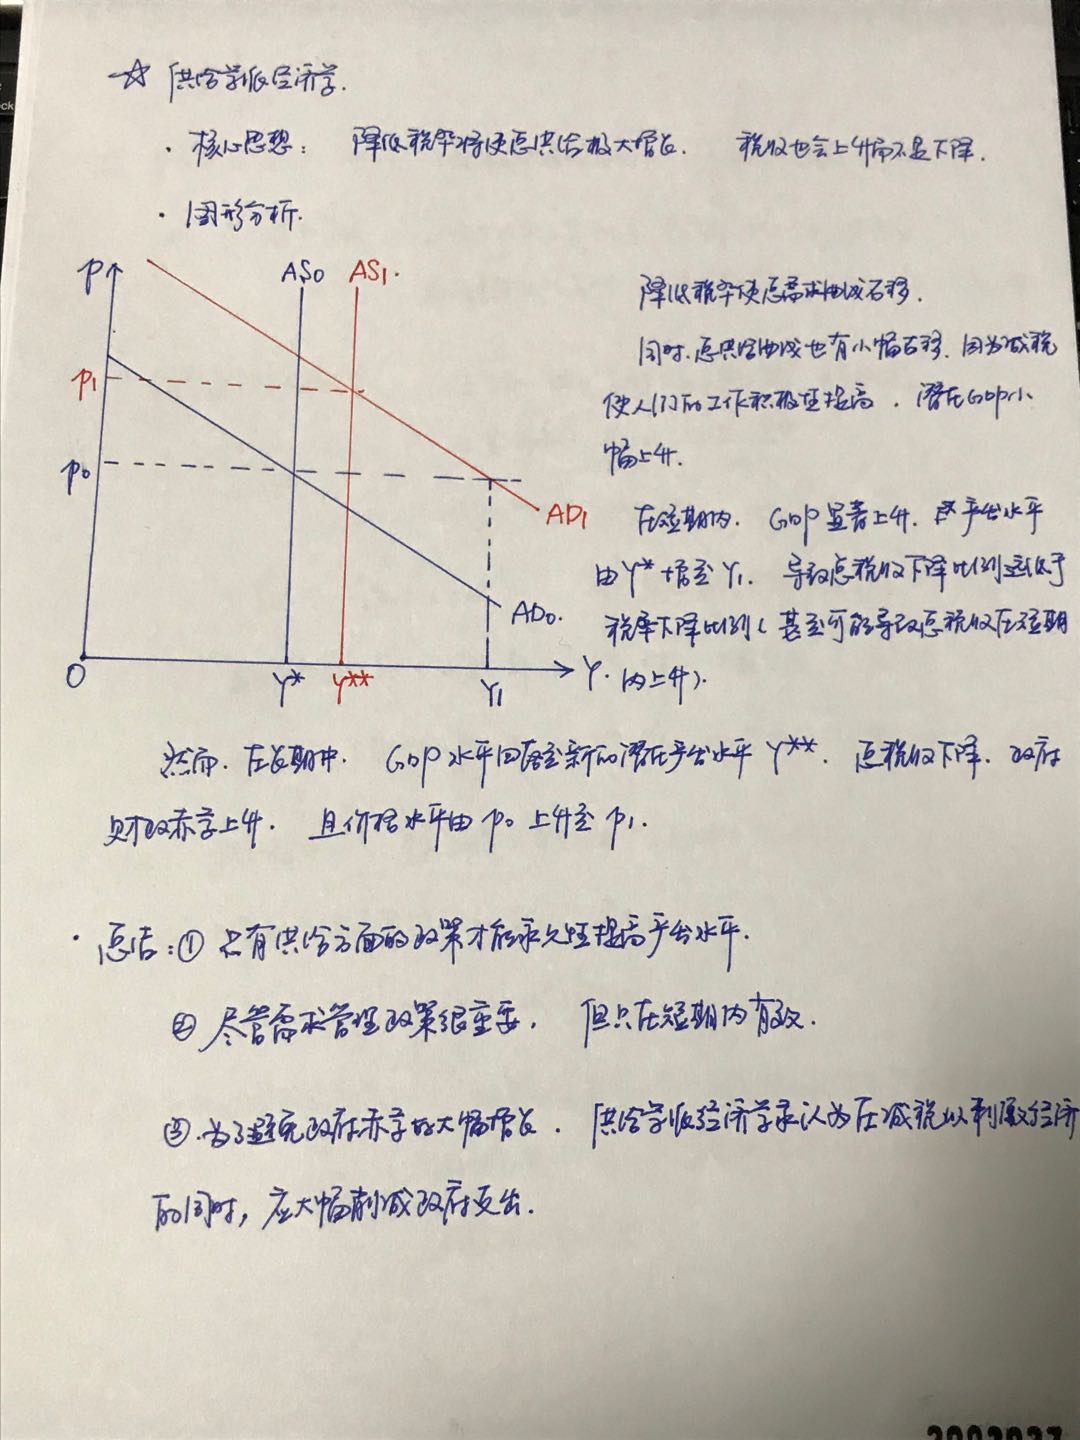 ☆ 供给学派经济学.
· 核心思想: 降低税率将使总供给极大增长. 税收也会上升而不是下降.
· 图形分析.
P AS₀ AS₁.
降低税率使总需求曲线右移.
同时.总供给曲线也有小幅右移.因为减税
P₁
使人们的工作积极性提高.潜在GDP小
幅上升.
P₀
AD₁
在短期内. GDP显著上升.
产出水平
由Y*增至Y₁. 导致总税收下降比例远低于
AD₀.
税率下降比例(甚至可能导致总税收在短期
内上升).
O Y* Y** Y₁ Y.
然而.在长期中. GDP水平回落至新的潜在产出水平Y**. 总税收下降.政府
财政赤字上升. 且价格水平由P₀上升至P₁.
· 总结:① 只有供给方面的政策才能永久性提高产出水平.
② 尽管需求管理政策很重要, 但只在短期内有效.
③.为了避免政府赤字的大幅增长. 供给学派经济学家认为在减税以刺激经济
的同时,应大幅削减政府支出.